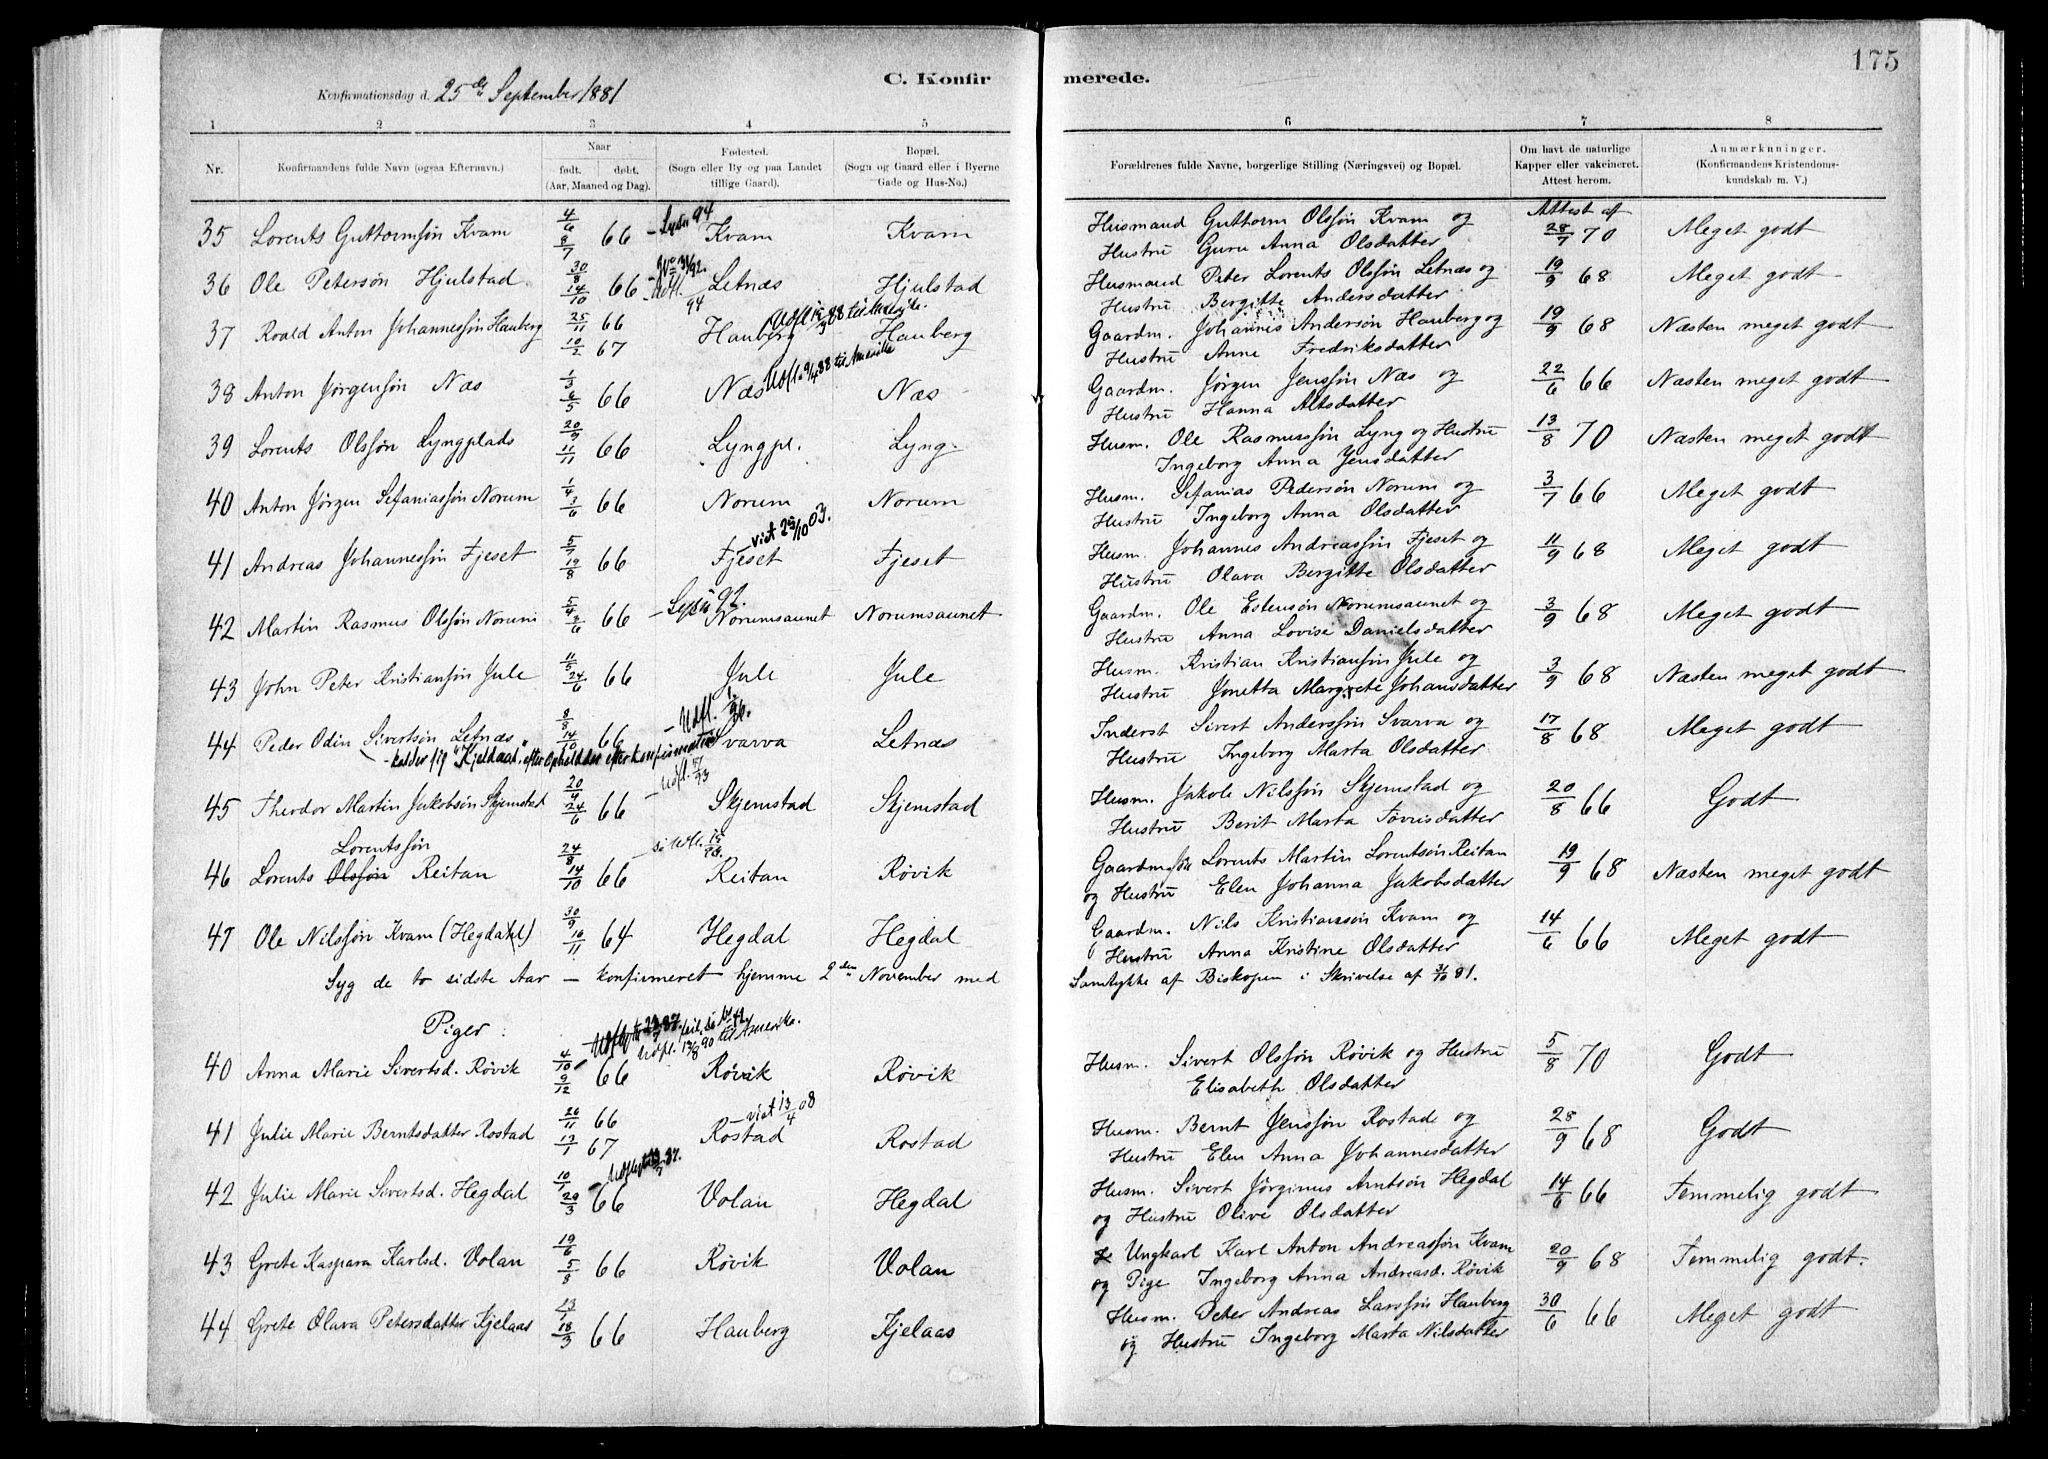 175
C. Konfirmerede.
Konfirmationsdag d. 25de September 1881
1 2 3 4 5 6 7 8
Nr. Konfirmandens fulde Navn (ogsaa Efternavn.) Naar født. døbt. (Aar, Maaned og Dag). Fødested. (Sogn eller By og paa Landet tillige Gaard). Bopæl. (Sogn og Gaard eller i Byerne Gade og Hus-No.) Forældrenes fulde Navne, borgerlige Stilling (Næringsvei) og Bopæl. Om havt de naturlige Kapper eller vakcineret. Attest herom. Anmærkninger. (Konfirmandens Kristendomskundskab m. V.)
35 Lorents Guttormsøn Kvam 4/6 8/7 66 Kvam Kvam Husmand Guttorm Olssøn Kvam og Attest af 28/7 70 Meget godt
Hustru Guru Anna Olsdatter
36 Ole Petersøn Hjulstad 30/8 14/10 66 Letnæs Hjulstad Husmand Peter Lorents Olssøn Letnæs og 19/9 68 Meget godt
Hustru Bergitte Andersdatter
Udfl. 88 til Amerika.
37 Roald Anton Johannessøn Hauberg 25/11 66 10/2 67 Hauberg Hauberg Gaardm. Johannes Andersøn Hauberg og 19/9 68 Næsten meget godt
Hustru Anne Fredriksdatter
Udfl. 9/4 88 til Amerika
38 Anton Jørgensøn Næs 1/3 6/5 66 Næs Næs Gaardm. Jørgen Jenssøn Næs og 22/6 66 Næsten meget godt
Hustru Hanna Altsdatter
39 Lorents Olssøn Lyngplads 20/9 11/11 66 Lyngpl. Lyng Husm. Ole Rasmussøn Lyng og Hustru 13/8 70 Næsten meget godt
Ingeborg Anna Jensdatter
40 Anton Jørgen Sefaniassøn Norum 1/4 3/6 66 Norum Norum Husm. Sefanias Pedersøn Norum og 3/7 66 Meget godt
Hustru Ingeborg Anna Olsdatter
viet 25/10 03.
41 Andreas Johannessøn Fjeset 5/7 19/8 66 Fjeset Fjeset Husm. Johannes Andreassøn Fjeset og 11/9 68 Meget godt
Hustru Olava Bergitte Olsdatter
42 Martin Rasmus Olssøn Norum 5/4 3/6 66 Norumsaunet Norumsaunet Gaardm. Ole Estensøn Norumsaunet og 3/9 68 Meget godt
Hustru Anna Lovise Danielsdatter
43 John Peter Kristiansøn Jule 11/5 24/6 66 Jule Jule Husm. Kristian Kristiansøn Jule og 3/9 68 Næsten meget godt
Hustru Jonetta Margrete Johansdatter
44 Peder Odin Sivertsøn Letnæs 8/8 14/10 66 Svarva Letnæs Inderst Sivert Anderssøn Svarva og 17/8 68 Meget godt
Hustru Ingeborg Marta Olsdatter
45 Theodor Martin Jakobsøn Skjemstad 20/4 24/6 66 Skjemstad Skjemstad Husm. Jakob Nilssøn Skjemstad og 20/8 66 Godt
Hustru Berit Marta Tørrisdatter
Lorentssøn
46 Lorents Olssøn Reitan 24/8 14/10 66 Reitan Røvik Gaardmssøn Lorents Martin Lorentsøn Reitan 19/9 68 Næsten meget godt
og Hustru Elen Johanna Jakobsdatter
47 Ole Nilssøn Kvam (Hegdahl) 30/9 16/11 64 Hegdal Hegdal Gaardm. Nils Kristianssøn Kvam og 14/6 66 Meget godt
Hustru Anna Kristine Olsdatter
Syg de to sidste Aar – konfirmeret hjemme 2den November med Samtykke af Biskopen i Skrivelse af 31/10 81.
Piger:
Udfl. 13/8 90 til Amerika.
40 Anna Marie Sivertsd. Røvik 4/10 9/12 66 Røvik Røvik Husm. Sivert Olssøn Røvik og Hustru 5/8 70 Godt
Elisabeth Olsdatter
viet 13/4 08
41 Julie Marie Berntsdatter Rostad 26/11 66 13/1 67 Rostad Rostad Husm. Bernt Jenssøn Rostad og 28/9 68 Godt
Hustru Elen Anna Johannesdatter
42 Julie Marie Sivertsd. Hegdal 10/1 29/3 66 Volan Hegdal Husm. Sivert Jørginus Arntsøn Hegdal 14/6 66 Temmelig godt
og Hustru Olive Olsdatter
43 Grete Kaspara Karlsd. Volan 19/6 5/8 66 Røvik Volan Ungkarl Karl Anton Andreassøn Kvam 20/9 68 Temmelig godt.
og Pige Ingeborg Anna Andreasd. Røvik
44 Grete Olava Petersdatter Kjelaas 13/1 18/3 66 Hauberg Kjelaas Husm. Peter Andreas Larssøn Hauberg 30/6 66 Meget godt
og Hustru Ingeborg Marta Nilsdatter